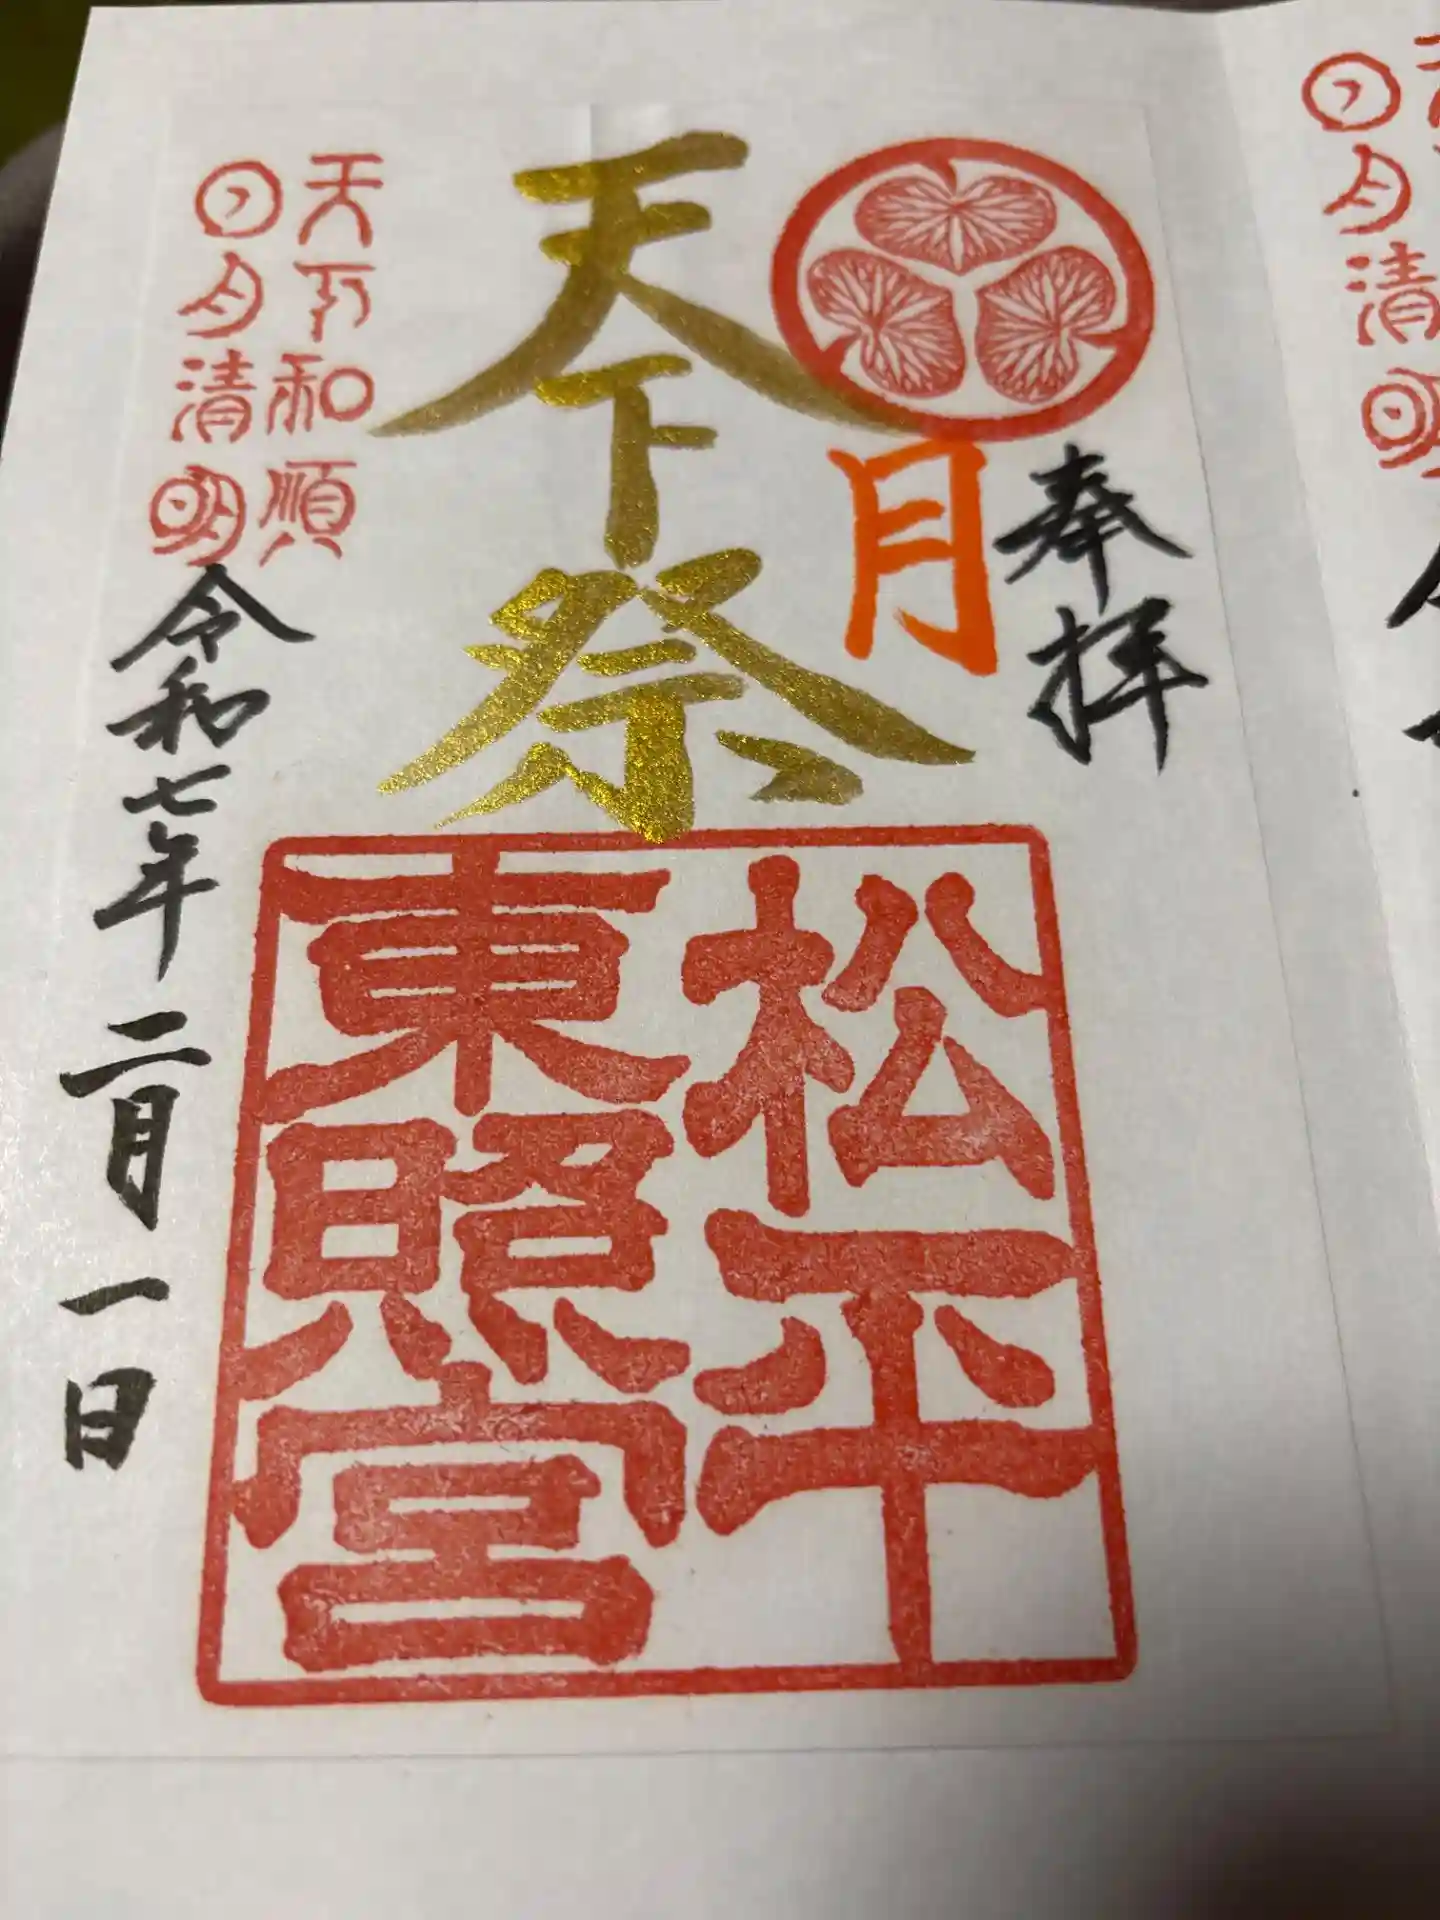 奉拝
月
天下祭
松平
東照宮
天下和順
日月清明
令和七年二月一日
日月清明